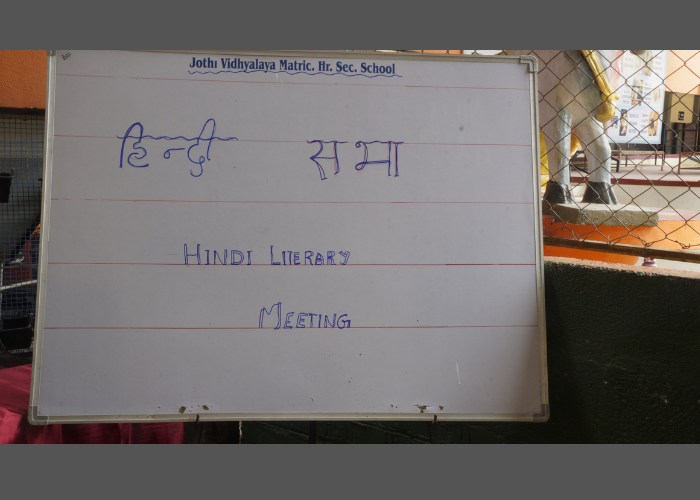 Jothi Vidhyalaya Matric. Hr. Sec. School
हिन्दी सभा
HINDI LITERARY
MEETING